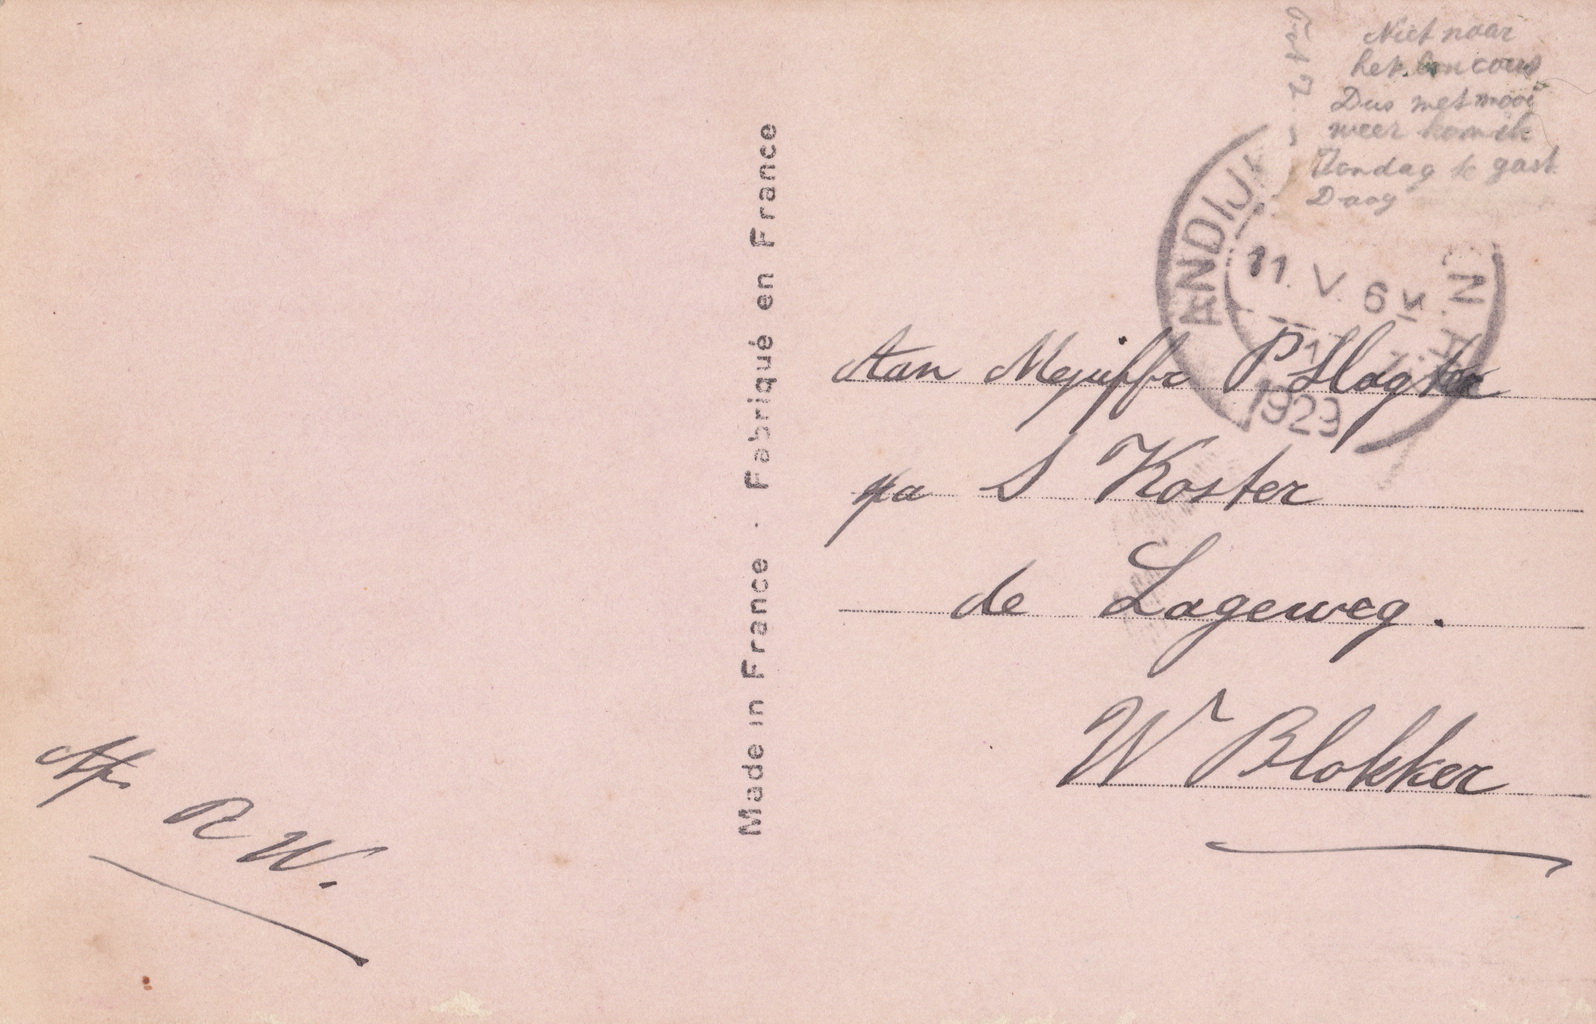 Niet naar
het concours
Dus met mooi
weer kom ik
Zondag te gast
Daag
ANDIJK N.H.
11. V. 6 N.
1929
Aan Mejuffr P Slagter
pa S Koster
de Lageweg.
Wr Blokker
Afz
R W.
Made in France · Fabriqué en France